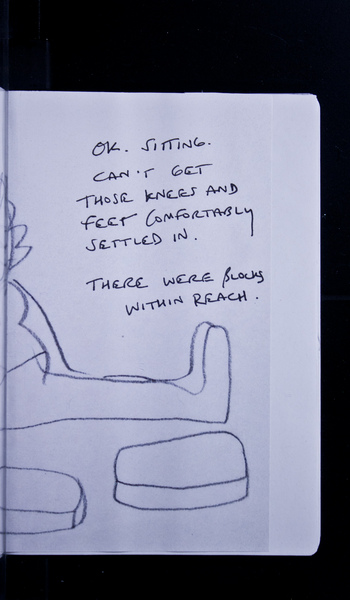 OK. SITTING.
CAN'T GET
THOSE KNEES AND
FEET COMFORTABLY
SETTLED IN.
THERE WERE BLOCKS
WITHIN REACH.